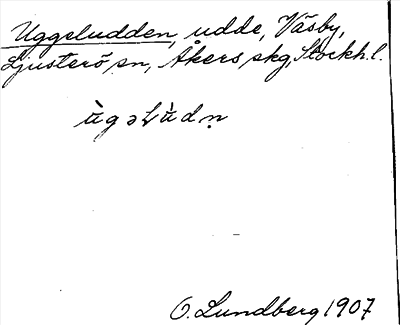 Uggeludden, udde, Väsby,
Ljusterö, sn, Åkers skg, Stockh. l.
ùgəlùdṇ
O. Lundberg 1907